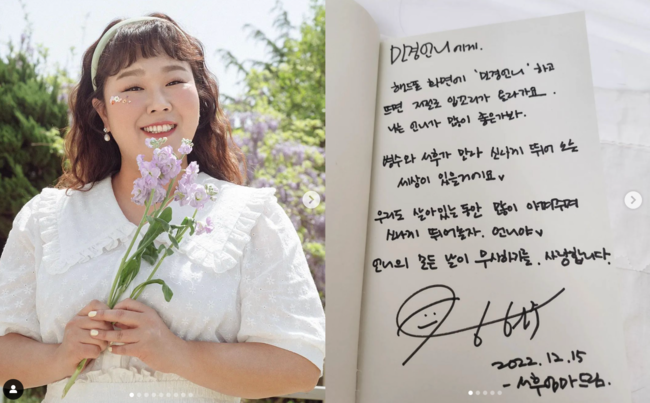 민경언니에게.
핸드폰 화면에 '민경언니' 하고
뜨면 저절로 입꼬리가 올라가요.
나는 언니가 많이 좋은가봐.
병수와 서후가 만나 신나게 뛰어 노는
세상이 있을거에요
우리도 살아있는 동안 많이 아껴주며
신나게 뛰어놀자. 언니야
언니의 모든 날이 무사하기를. 사랑합니다.
2022. 12. 15
- 서후엄마 드림.